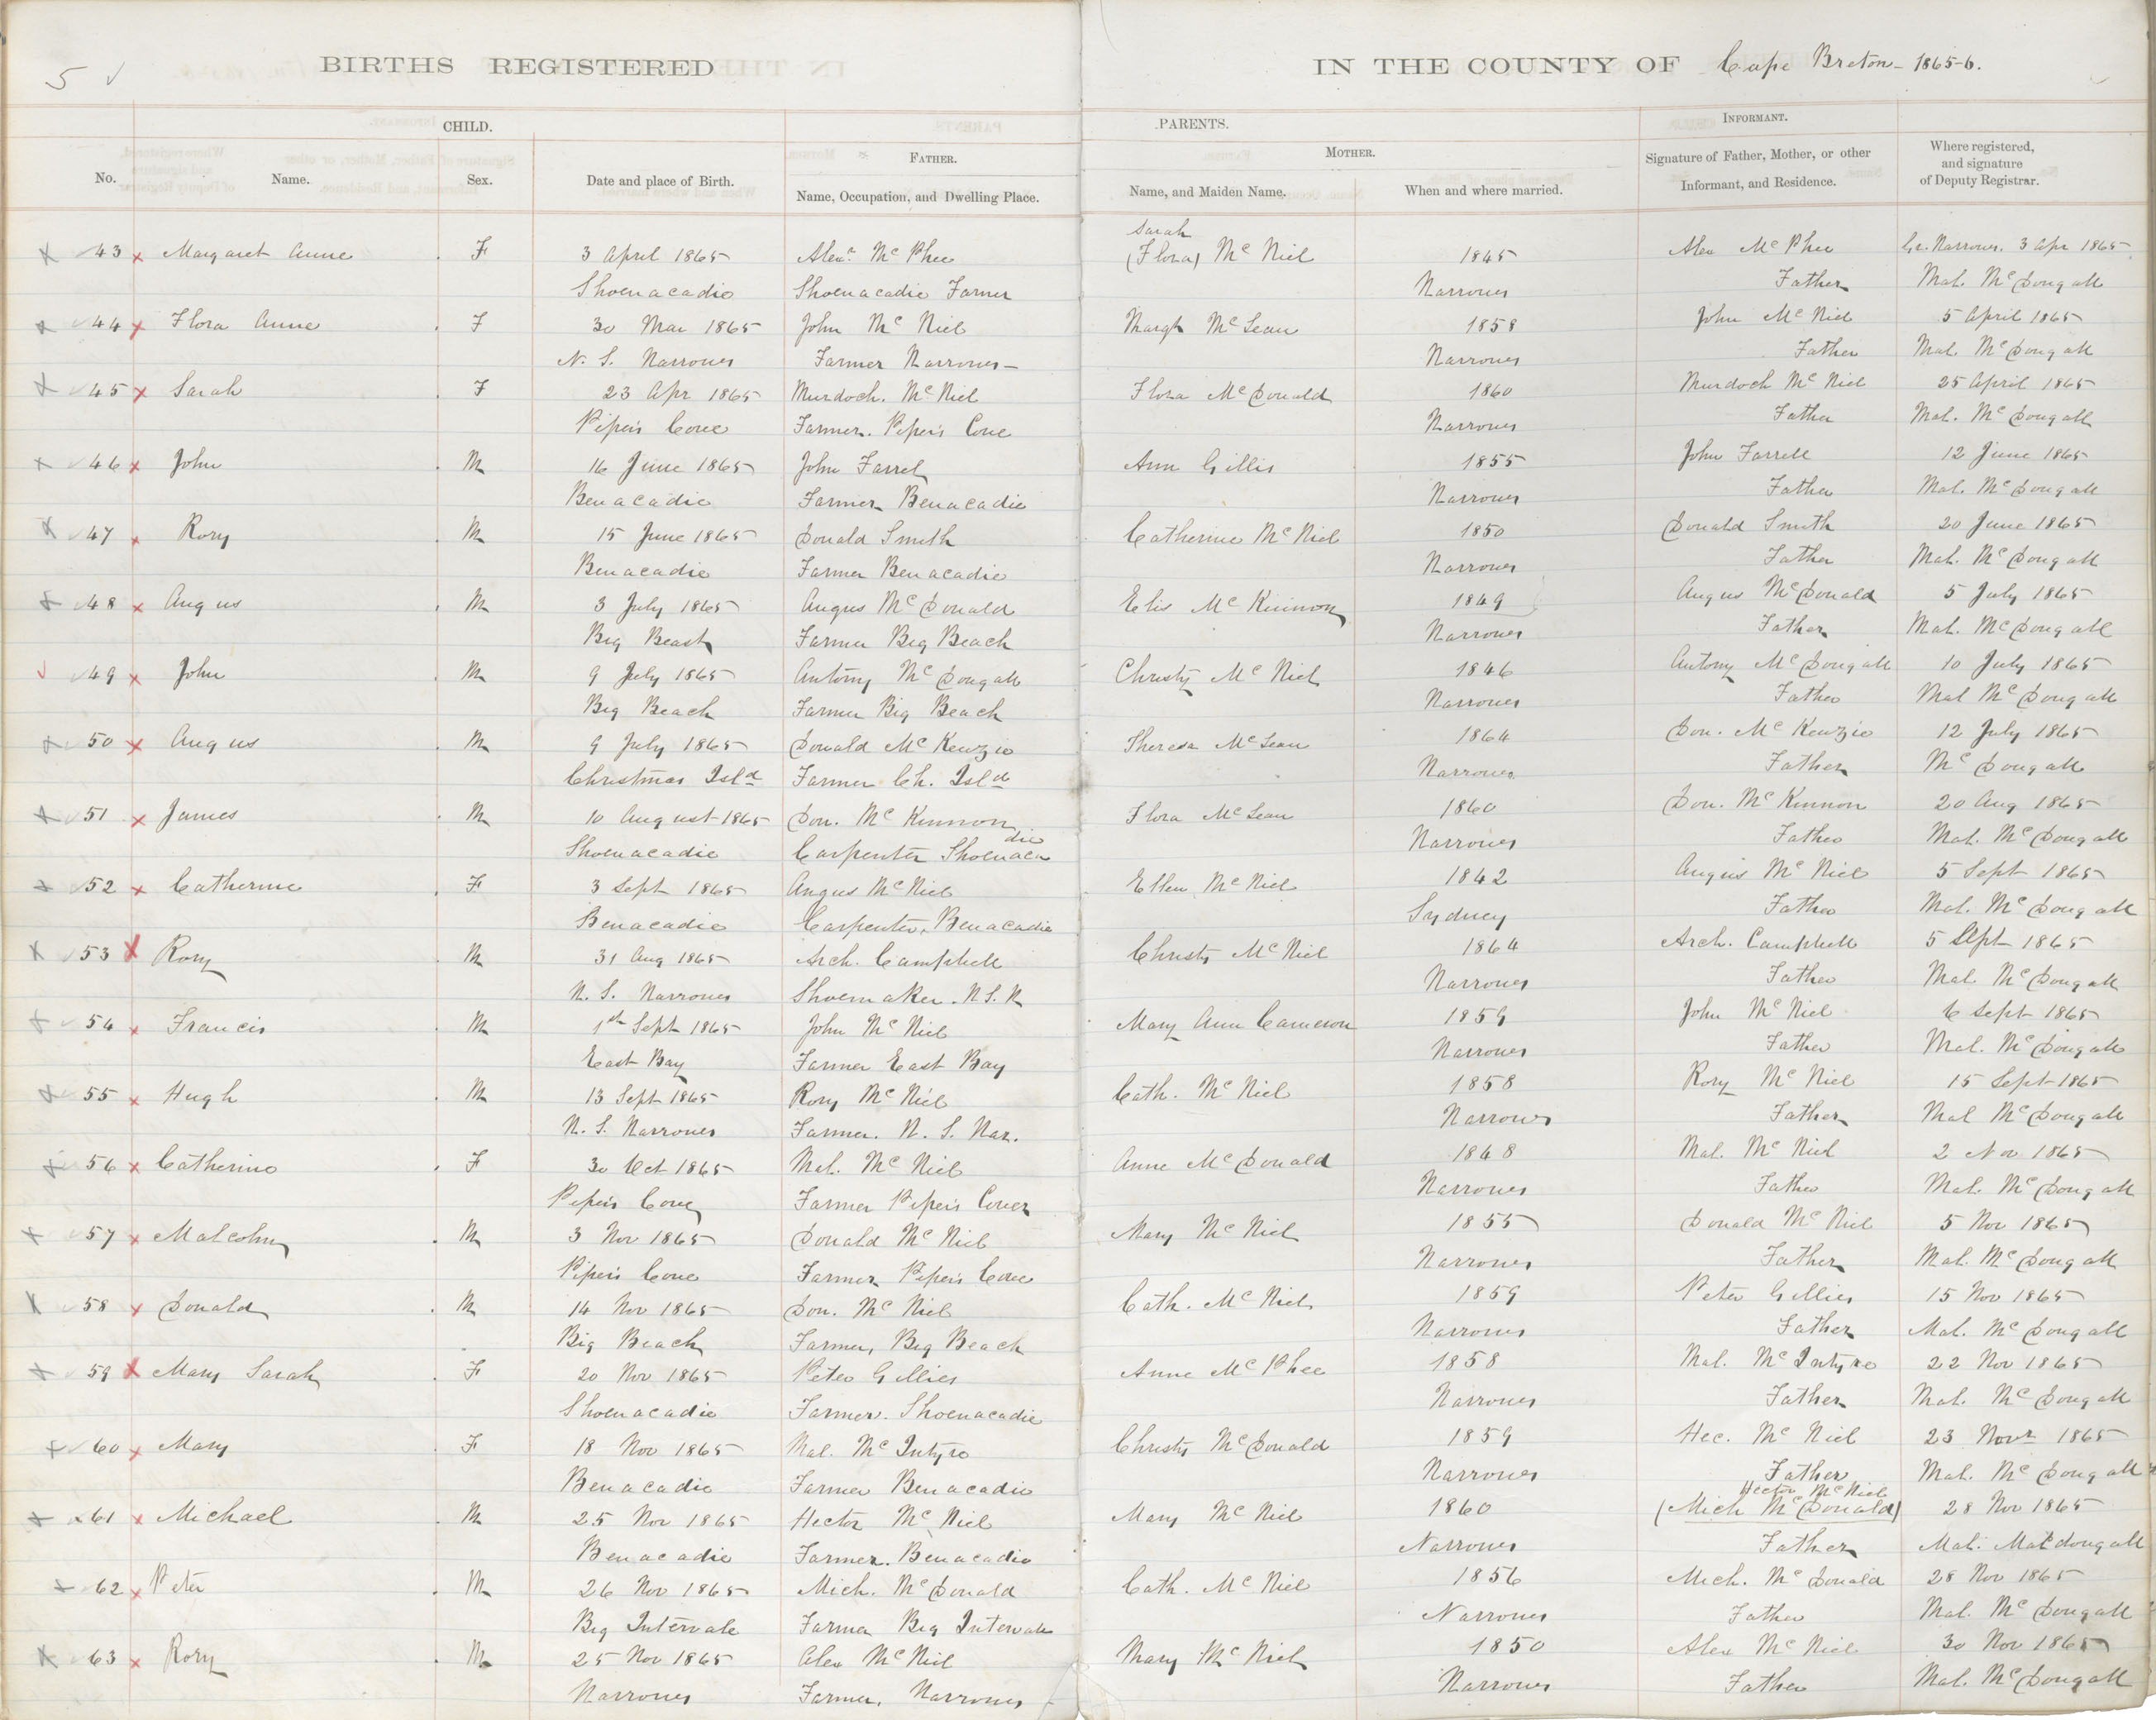 5
BIRTHS REGISTERED IN THE COUNTY OF Cape Breton - 1865-6.
CHILD. PARENTS. INFORMANT.
No. Name. Sex. Date and place of Birth. FATHER. Name, Occupation, and Dwelling Place. MOTHER. Name, and Maiden Name. When and where married. Signature of Father, Mother, or other Informant, and Residence. Where registered, and signature of Deputy Registrar.
Sarah
43 x Margaret Anne F 3 April 1865 Alexr. Mc Phee (Flora) Mc Niel 1845 Alex Mc Phee Gr. Narrows. 3 Apr 1865
Shoenacadie Shoenacadie Farmer Narrows Father Mal. Mc Dougall
44 x Flora Anne F 30 Mar 1865 John Mc Niel Margt McLean 1858 John Mc Niel 5 April 1865
N. S. Narrows Farmer Narrows - Narrows Father Mal. Mc Dougall
45 x Sarah F 23 Apr 1865 Murdoch. Mc Niel Flora McDonald 1860 Murdoch Mc Niel 25 April 1865
Piper's Cove Farmer. Piper's Cove Narrows Father Mal. Mc Dougall
46 x John M 16 June 1865 John Farrel Ann Gillis 1855 John Farrell 12 June 1865
Benacadie Farmer Benacadie Narrows Father Mal. Mc Dougall
47 x Rory M 15 June 1865 Donald Smith Catherine Mc Niel 1850 Donald Smith 20 June 1865
Benacadie Farmer Benacadie Narrows Father Mal. Mc Dougall
48 x Angus M 3 July 1865 Angus McDonald Elis McKinnon 1849 Angus McDonald 5 July 1865
Big Beach Farmer Big Beach Narrows Father Mal. McDougall
49 x John M 9 July 1865 Antony McDougall Christy Mc Niel 1846 Antony McDougall 10 July 1865
Big Beach Farmer Big Beach Narrows Father Mal McDougall
50 x Angus M 9 July 1865 Donald McKenzie Theresa McLean 1864 Don. McKenzie 12 July 1865
Christmas Isld Farmer Ch. Isld Narrows Father McDougall
51 x James M 10 August 1865 Don. McKinnon Flora McLean 1860 Don. McKinnon 20 Aug 1865
Shoenacadie Carpenter Shoenacadie Narrows Father Mal. McDougall
52 x Catherine F 3 Sept 1865 Angus McNiel Ellen McNiel 1842 Angus McNiel 5 Sept 1865
Benacadie Carpenter, Benacadie Sydney Father Mal. McDougall
53 x Rory M 31 Aug 1865 Arch. Campbell Christy McNiel 1864 Arch. Campbell 5 Sept 1865
N. S. Narrows Shoemaker. N S. N Narrows Father Mal. McDougall
54 x Francis M 1st Sept 1865 John McNiel Mary Ann Cameron 1859 John McNiel 6 Sept 1865
East Bay Farmer East Bay Narrows Father Mal. McDougall
55 x Hugh M 13 Sept 1865 Rory McNiel Cath. McNiel 1858 Rory McNiel 15 Sept 1865
N. S. Narrows Farmer. N. S. Nar. Narrows Father Mal McDougall
56 x Catherine F 30 Oct 1865 Mal. McNiel Anne McDonald 1848 Mal. McNiel 2 Nov 1865
Piper's Cove Farmer Piper's Cove Narrows Father Mal. McDougall
57 x Malcolm M 3 Nov 1865 Donald McNiel Mary McNiel 1855 Donald McNiel 5 Nov 1865
Piper's Cove Farmer Piper's Cove Narrows Father Mal. McDougall
58 x Donald M 14 Nov 1865 Don. McNiel Cath. McNiel 1859 Peter Gillies 15 Nov 1865
Big Beach Farmer, Big Beach Narrows Father Mal. McDougall
59 x Mary Sarah F 20 Nov 1865 Peter Gillies Anne McPhee 1858 Mal. McIntyre 22 Nov 1865
Shoenacadie Farmer. Shoenacadie Narrows Father Mal. McDougall
60 x Mary F 18 Nov 1865 Mal. McIntyre Christy McDonald 1859 Hec. McNiel 23 Novr 1865
Benacadie Farmer Benacadie Narrows Father Mal. McDougall
Hector McNiel
61 x Michael M 25 Nov 1865 Hector McNiel Mary McNiel 1860 (Mich McDonald) 28 Nov 1865
Benacadie Farmer. Benacadie Narrows Father Mal. Macdougall
62 x Peter M 26 Nov 1865 Mich. McDonald Cath. McNiel 1856 Mich. McDonald 28 Nov 1865
Big Intervale Farmer Big Intervale Narrows Father Mal. McDougall
63 x Rory M 25 Nov 1865 Alex McNiel Mary McNiel 1850 Alex McNiel 30 Nov 1865
Narrows Farmer, Narrows - Narrows Father Mal. McDougall